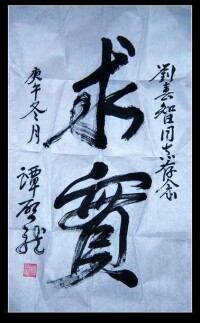 劉喜智同志存念
求實
庚午冬月
譚啓龍